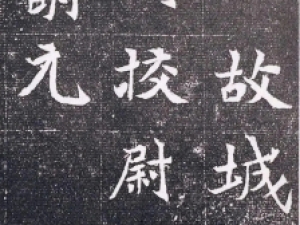 故城
校尉
元